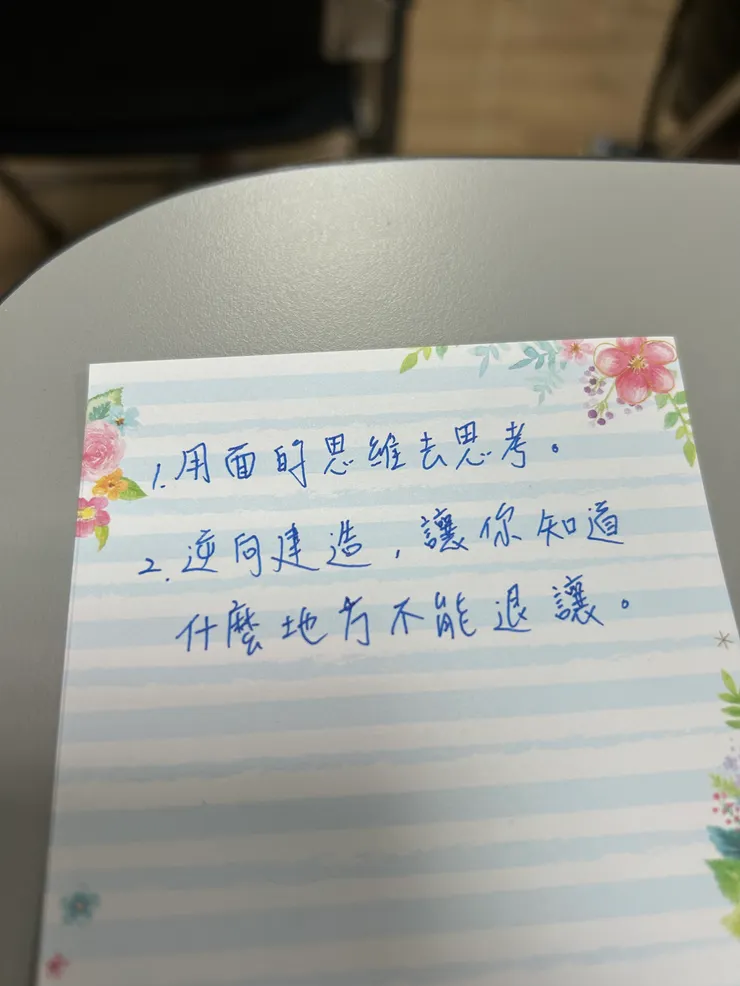 1. 用面的思維去思考。
2. 逆向建造,讓你知道
什麼地方不能退讓。